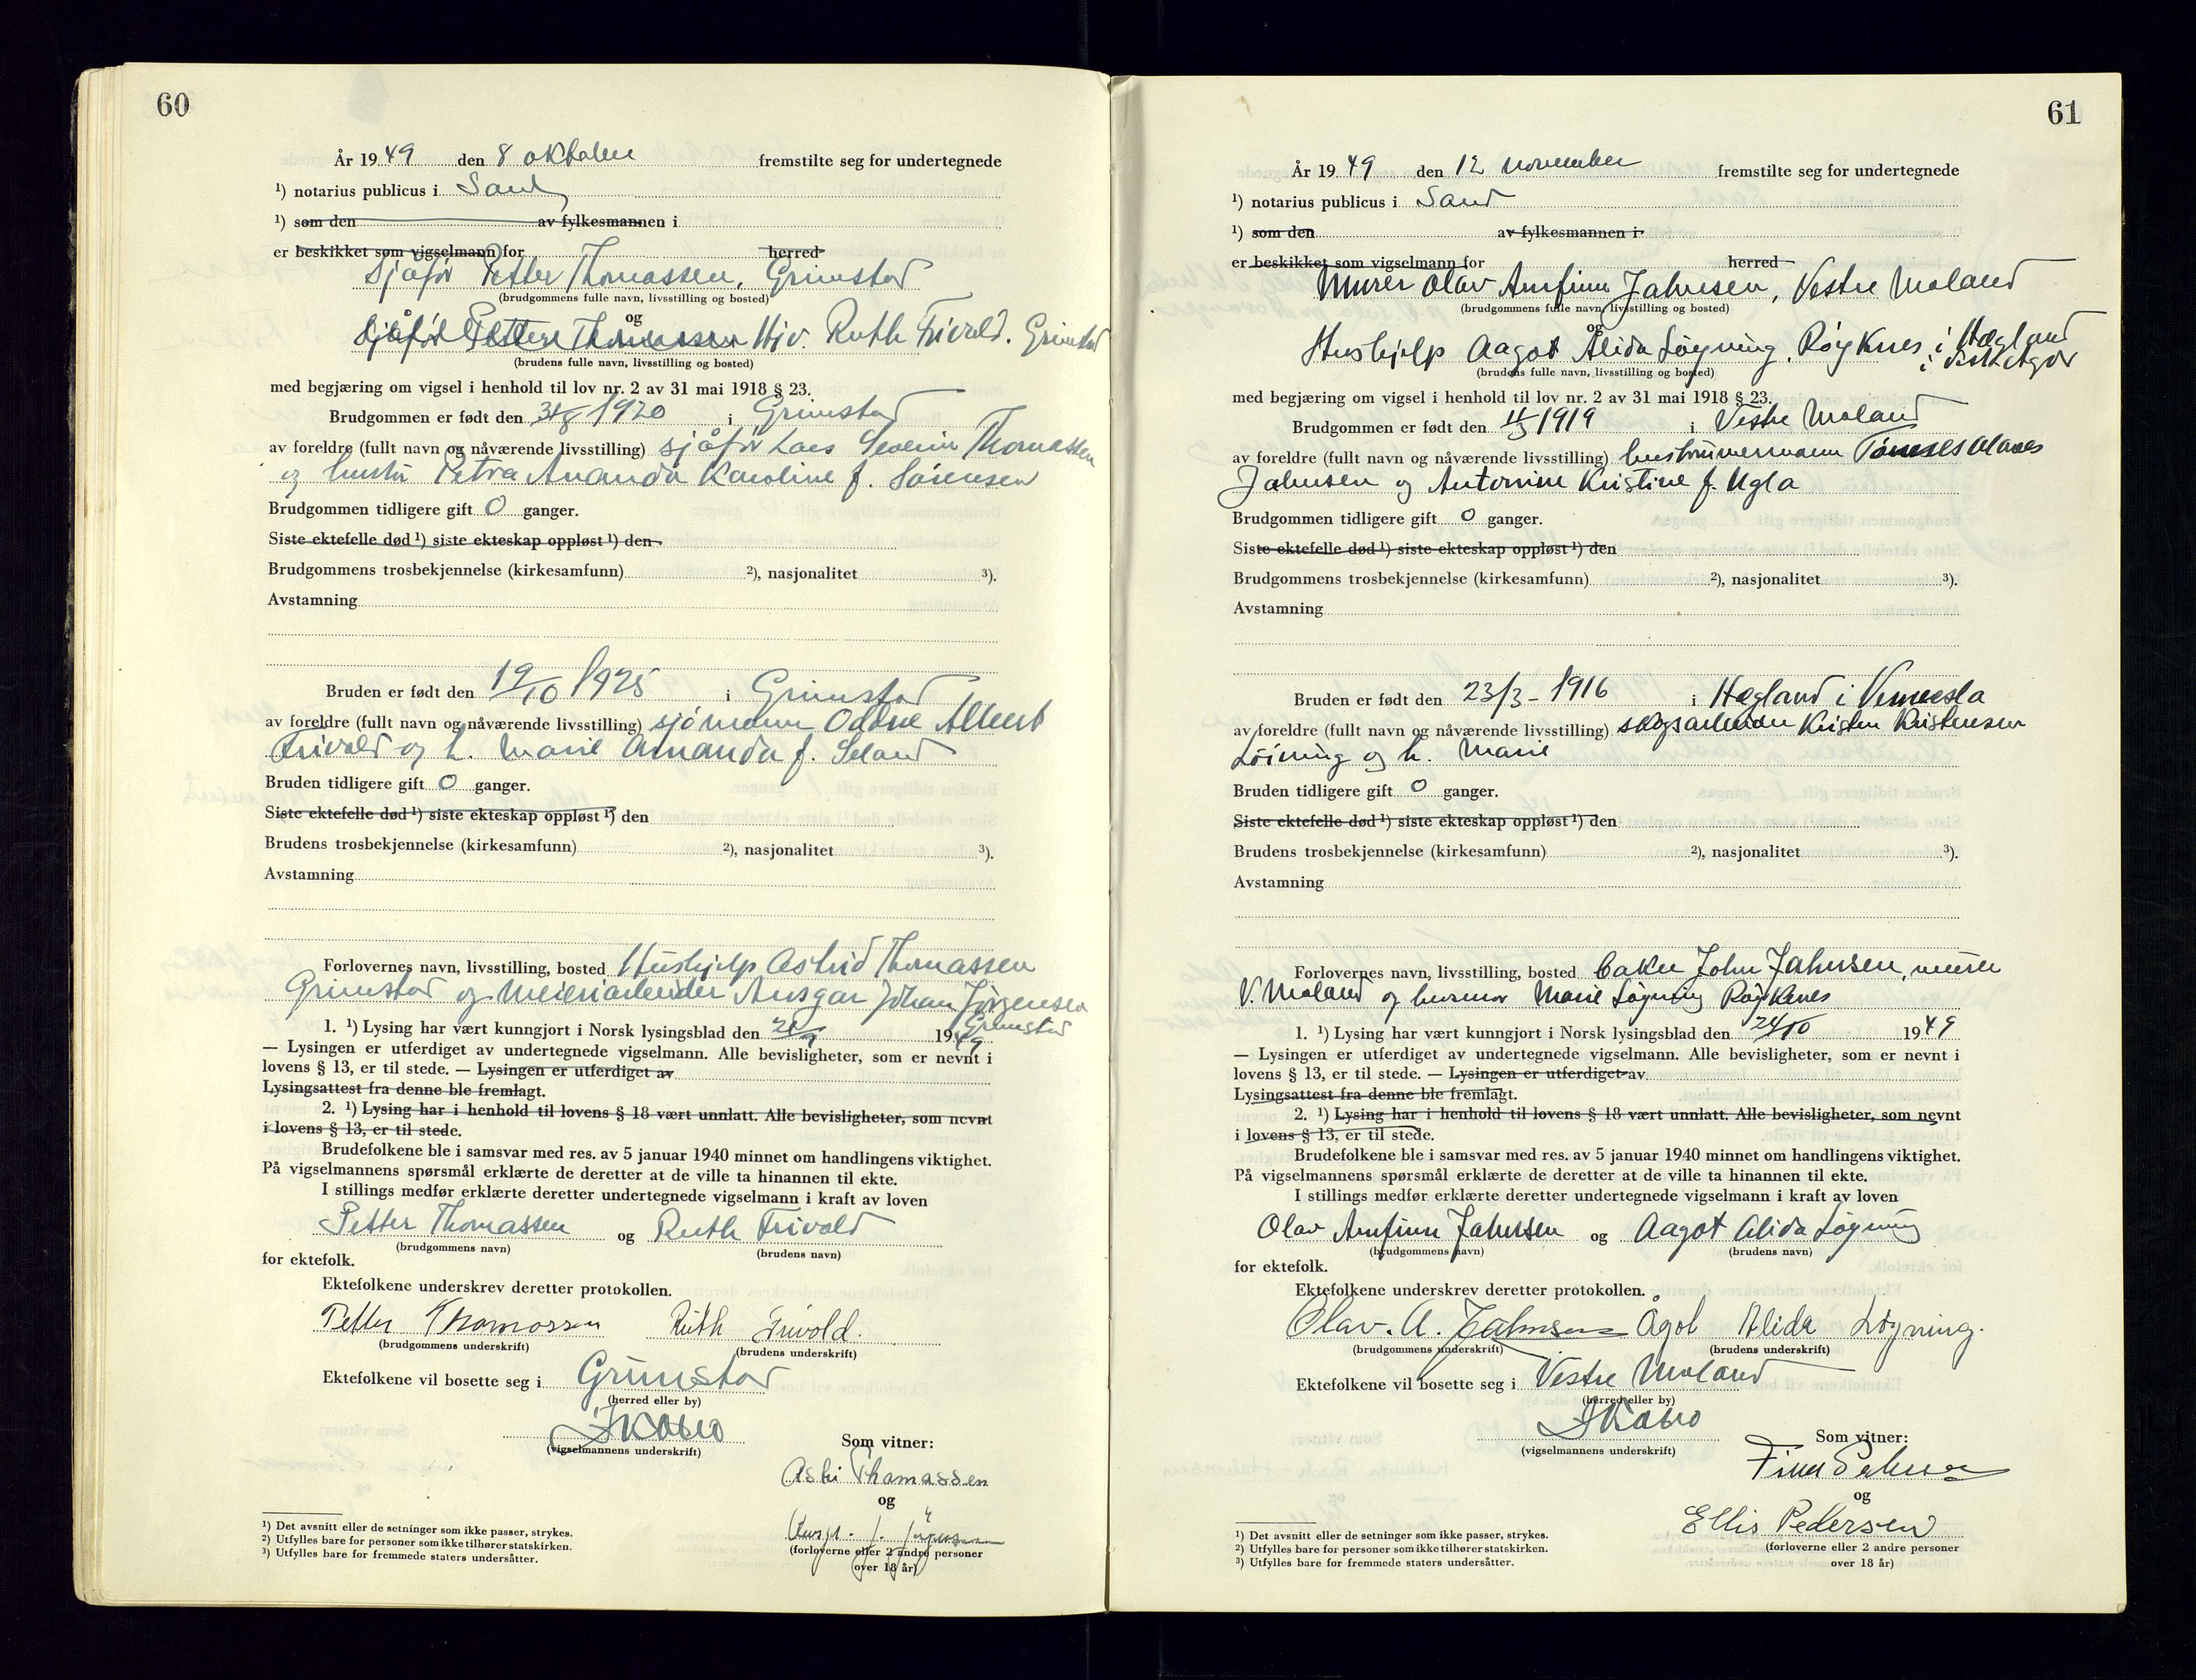 60
År 1949 den 8 oktober fremstilte seg for undertegnede
¹) notarius publicus i Sand
¹) som den av fylkesmannen i
er beskikket som vigselmann for herred
Sjåfør Petter Thomassen, Grimstad
(brudgommens fulle navn, livsstilling og bosted)
og
Sjåfør Petter Thomassen Hjv. Ruth Frivold. Grimstad
(brudens fulle navn, livsstilling og bosted)
med begjæring om vigsel i henhold til lov nr. 2 av 31 mai 1918 § 23.
Brudgommen er født den 31/8 1920 i Grimstad
av foreldre (fullt navn og nåværende livsstilling) sjåfør Lars Severin Thomassen
og hustru Petra Amanda Karoline f. Sørensen
Brudgommen tidligere gift 0 ganger.
Siste ektefelle død ¹) siste ekteskap oppløst ¹) den
Brudgommens trosbekjennelse (kirkesamfunn) ²), nasjonalitet ³).
Avstamning
Bruden er født den 19/10 1925 i Grimstad
av foreldre (fullt navn og nåværende livsstilling) sjømann Oddne Albert
Frivold og h. Marie Amanda f. Seland
Bruden tidligere gift 0 ganger.
Siste ektefelle død ¹) siste ekteskap oppløst ¹) den
Brudens trosbekjennelse (kirkesamfunn) ²), nasjonalitet ³).
Avstamning
Forlovernes navn, livsstilling, bosted Hushjelp Astrid Thomassen
Grimstad og meieriarbeider Ansgar Johan Jørgensen
Grimstad
1. ¹) Lysing har vært kunngjort i Norsk lysingsblad den 1949
— Lysingen er utferdiget av undertegnede vigselmann. Alle bevisligheter, som er nevnt i
lovens § 13, er til stede. — Lysingen er utferdiget av
Lysingsattest fra denne ble fremlagt.
2. ¹) Lysing har i henhold til lovens § 18 vært unnlatt. Alle bevisligheter, som nevnt
i lovens § 13, er til stede.
Brudefolkene ble i samsvar med res. av 5 januar 1940 minnet om handlingens viktighet.
På vigselmannens spørsmål erklærte de deretter at de ville ta hinannen til ekte.
I stillings medfør erklærte deretter undertegnede vigselmann i kraft av loven
Petter Thomassen og Ruth Frivold
(brudgommens navn) (brudens navn)
for ektefolk.
Ektefolkene underskrev deretter protokollen.
Petter Thomassen Ruth Frivold.
(brudgommens underskrift) (brudens underskrift)
Ektefolkene vil bosette seg i Grimstad
(herred eller by)
(vigselmannens underskrift)
Som vitner:
Thomassen
og
(forloverne eller 2 andre personer
over 18 år)
¹) Det avsnitt eller de setninger som ikke passer, strykes.
²) Utfylles bare for personer som ikke tilhører statskirken.
³) Utfylles bare for fremmede staters undersåtter.
61
År 1949 den 12 november fremstilte seg for undertegnede
¹) notarius publicus i Sand
¹) som den av fylkesmannen i
er beskikket som vigselmann for herred
Murer Olav Arnfinn Jahnsen, Vestre Moland
(brudgommens fulle navn, livsstilling og bosted)
og
Hushjelp Aagot Alida Løyning, Røyknes i Hægland
i Vest Agder
(brudens fulle navn, livsstilling og bosted)
med begjæring om vigsel i henhold til lov nr. 2 av 31 mai 1918 § 23.
Brudgommen er født den 11/3 1919 i Vestre Moland
av foreldre (fullt navn og nåværende livsstilling) hustømmermann Tønnes
Jahnsen og Antonine Kristine f. Ugla
Brudgommen tidligere gift 0 ganger.
Siste ektefelle død ¹) siste ekteskap oppløst ¹) den
Brudgommens trosbekjennelse (kirkesamfunn) ²), nasjonalitet ³).
Avstamning
Bruden er født den 23/3 - 1916 i Hægland i Vennesla
av foreldre (fullt navn og nåværende livsstilling) skogsarbeider Kristen Kristensen
Løining og h. Marie
Bruden tidligere gift 0 ganger.
Siste ektefelle død ¹) siste ekteskap oppløst ¹) den
Brudens trosbekjennelse (kirkesamfunn) ²), nasjonalitet ³).
Avstamning
Forlovernes navn, livsstilling, bosted baker John Jahnsen, murer
V. Moland og husmor Marie Løyning Røyknes
1. ¹) Lysing har vært kunngjort i Norsk lysingsblad den 24/10 1949
— Lysingen er utferdiget av undertegnede vigselmann. Alle bevisligheter, som er nevnt i
lovens § 13, er til stede. — Lysingen er utferdiget av
Lysingsattest fra denne ble fremlagt.
2. ¹) Lysing har i henhold til lovens § 18 vært unnlatt. Alle bevisligheter, som nevnt
i lovens § 13, er til stede.
Brudefolkene ble i samsvar med res. av 5 januar 1940 minnet om handlingens viktighet.
På vigselmannens spørsmål erklærte de deretter at de ville ta hinannen til ekte.
I stillings medfør erklærte deretter undertegnede vigselmann i kraft av loven
Olav Arnfinn Jahnsen og Aagot Alida Løyning
(brudgommens navn) (brudens navn)
for ektefolk.
Ektefolkene underskrev deretter protokollen.
Olav. A. Jahnsen Ågot Alida Løyning.
(brudgommens underskrift) (brudens underskrift)
Ektefolkene vil bosette seg i Vestre Moland
(herred eller by)
(vigselmannens underskrift)
Som vitner:
Finn
og
Ellis Pedersen
(forloverne eller 2 andre personer
over 18 år)
¹) Det avsnitt eller de setninger som ikke passer, strykes.
²) Utfylles bare for personer som ikke tilhører statskirken.
³) Utfylles bare for fremmede staters undersåtter.